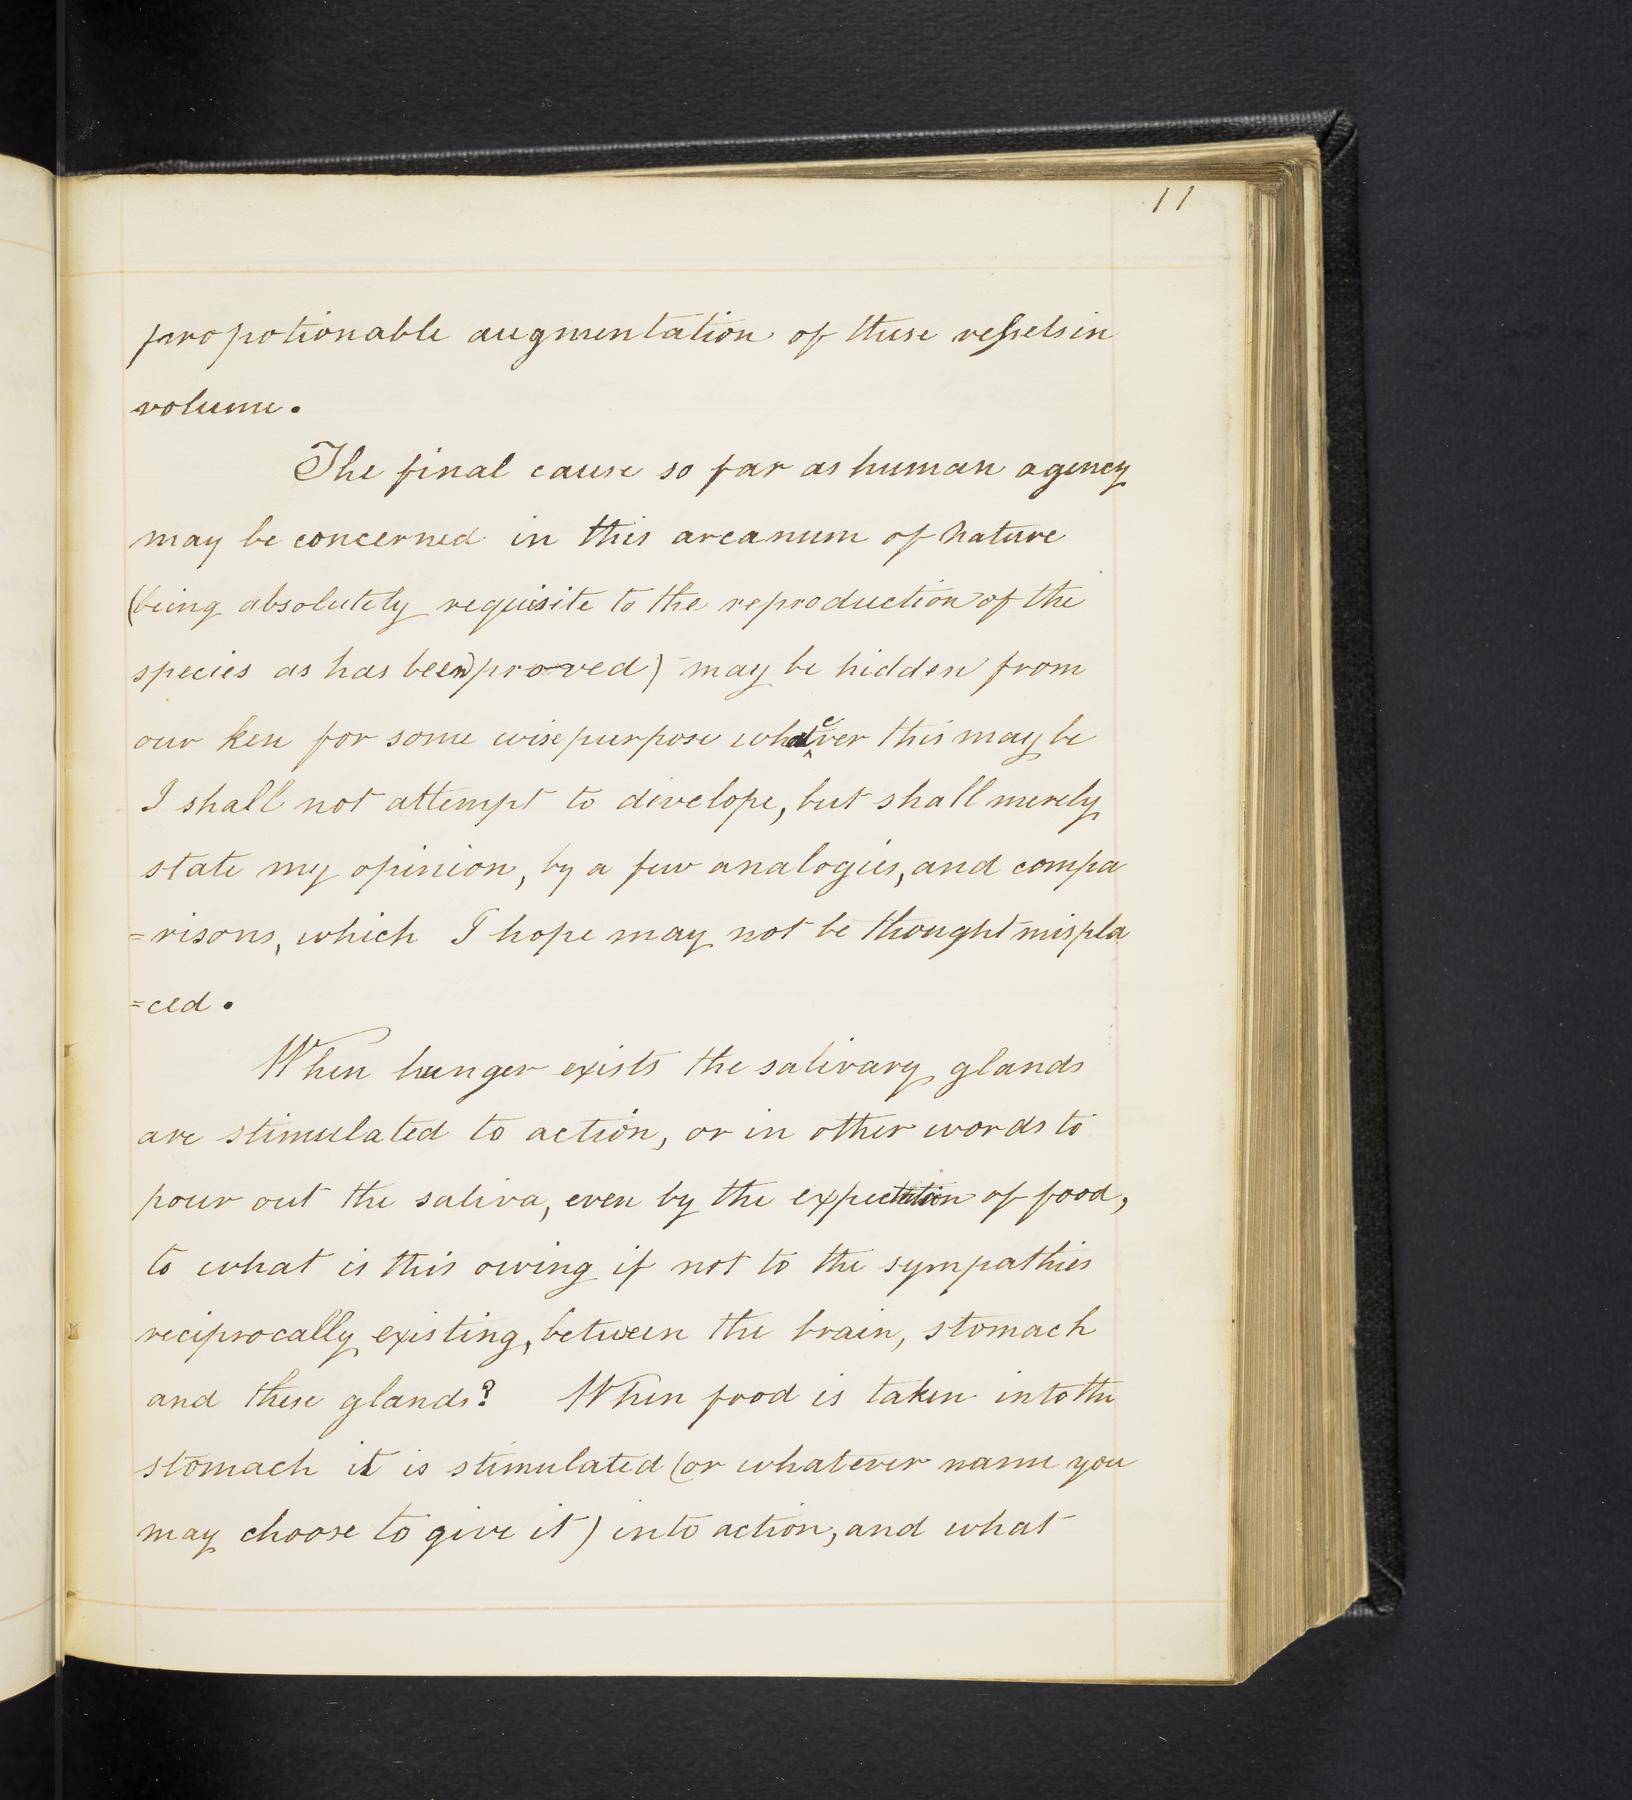 11
propotionable augmentation of these vessels in
volume.
The final cause so far as human agency
may be concerned in this arcanum of Nature
(being absolutely requisite to the reproduction of the
species as has been) proved) may be hidden from
our ken for some wise purpose whatever this may be
I shall not attempt to develope, but shall merely
state my opinion, by a few analogies, and compa
=risons, which I hope may not be thought mispla
=ced.
When hunger exists the salivary glands
are stimulated to action, or in other words to
pour out the saliva, even by the expectation of food,
to what is this owing if not to the sympathies
reciprocally existing, between the brain, stomach
and these glands? When food is taken into the
stomach it is stimulated (or whatever name you
may choose to give it) into action, and what